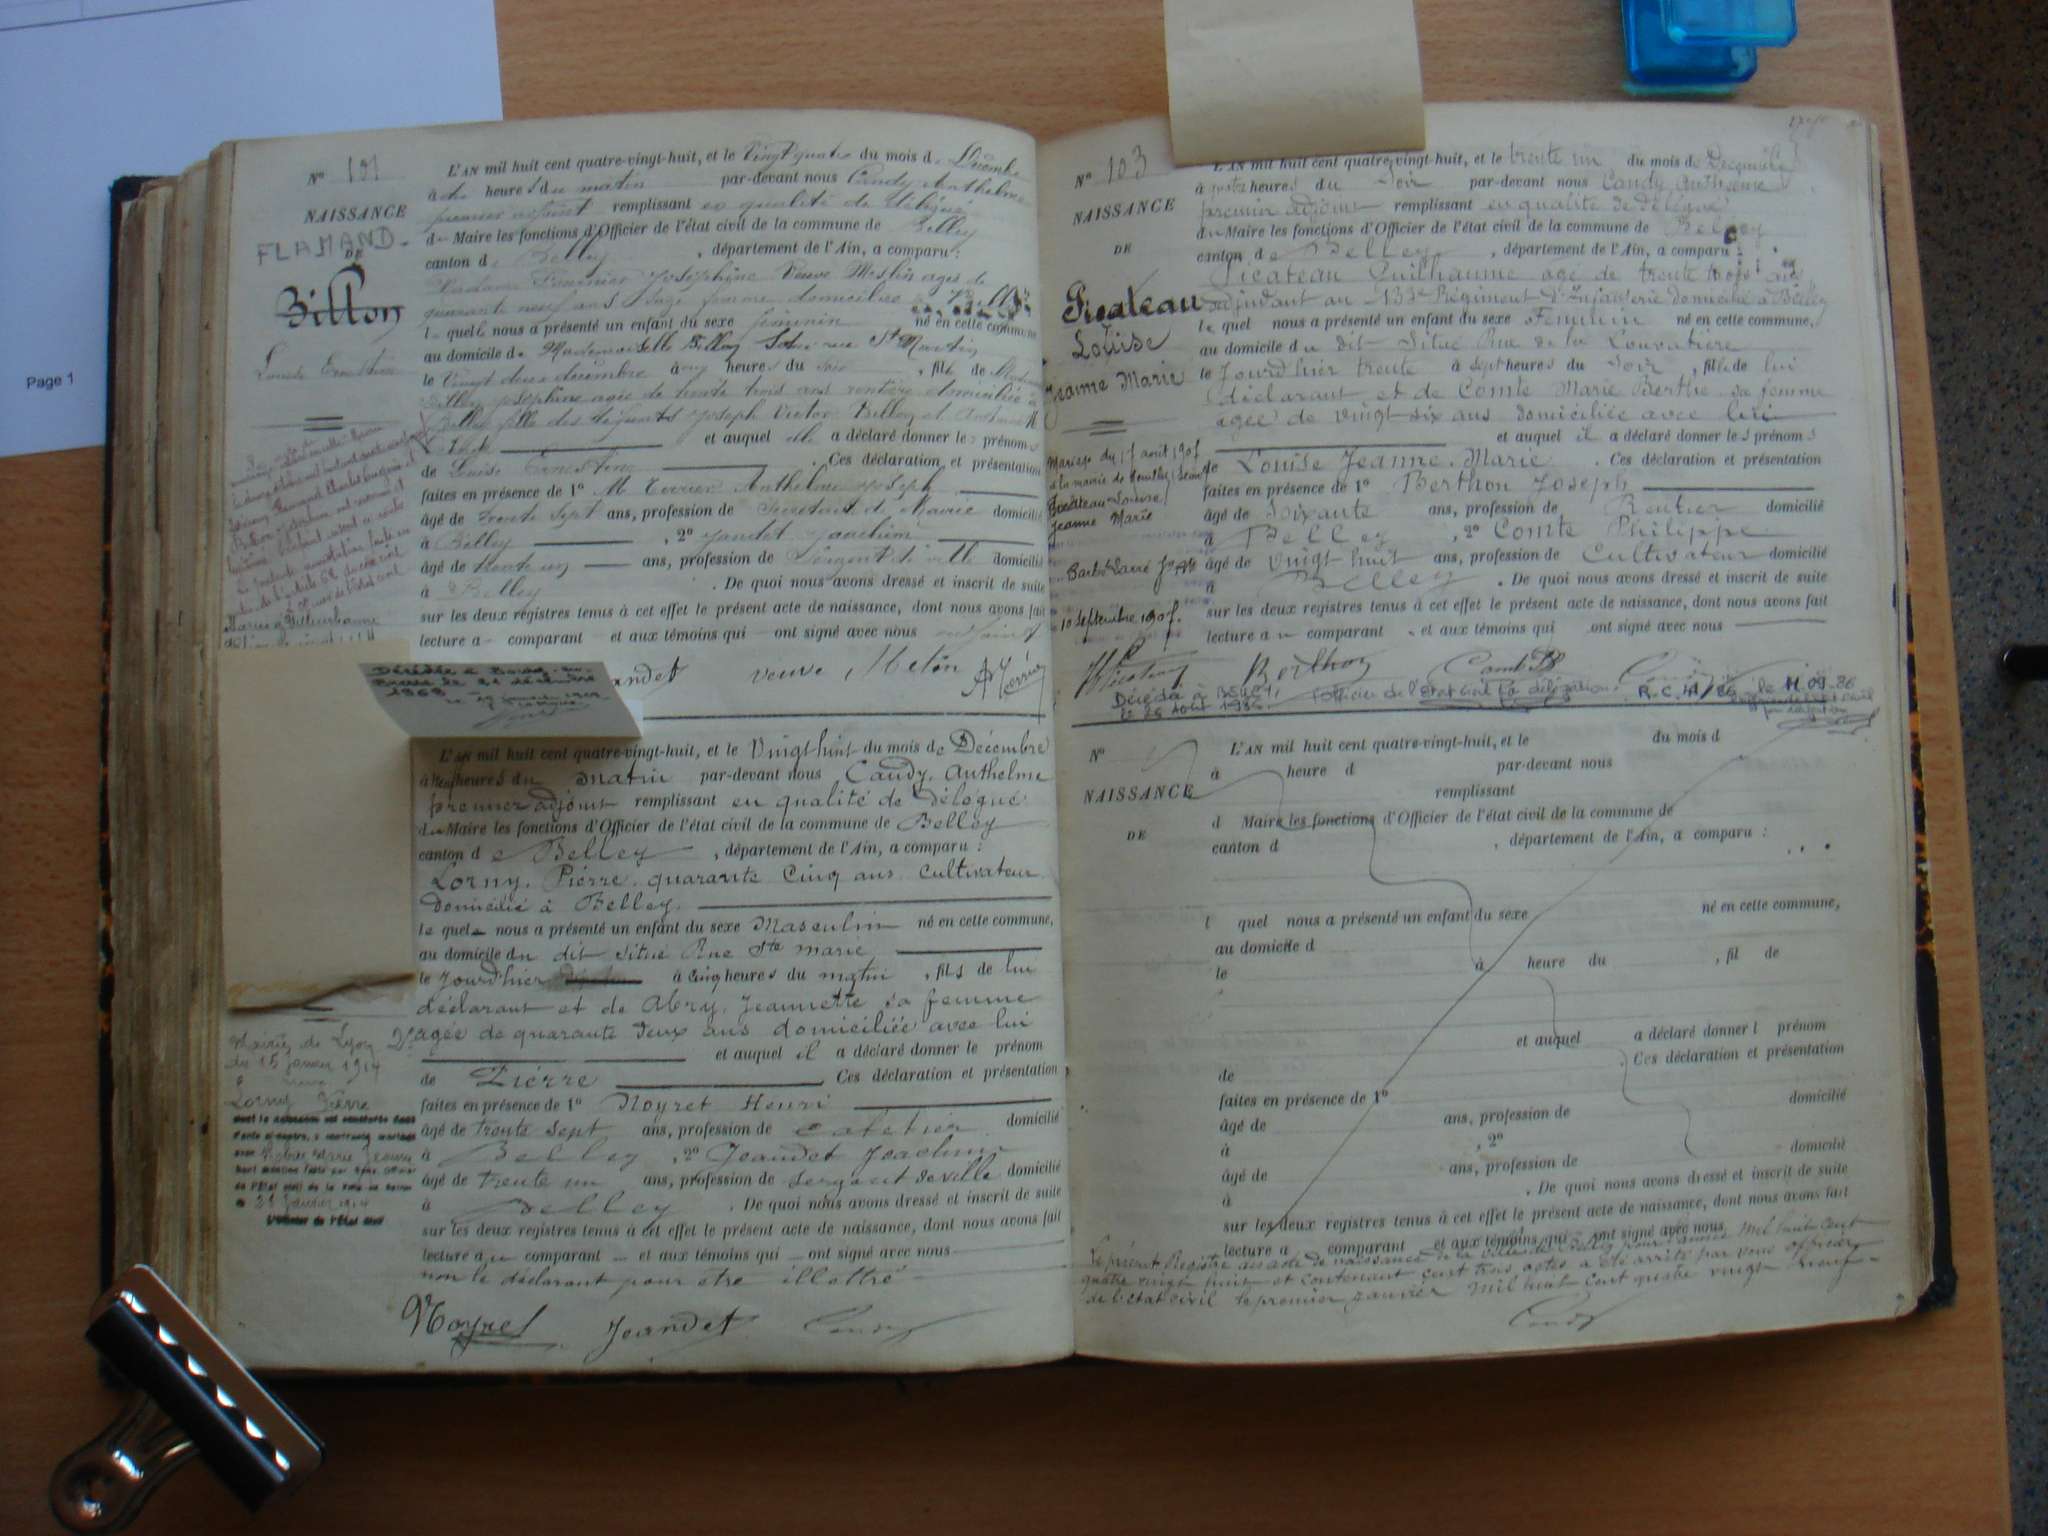 Page 1
N° 101
NAISSANCE
FLAMAND
DE
Billon
Louise Ernestine
L'AN mil huit cent quatre-vingt-huit, et le Vingt quatre du mois de Décembre
à dix heures du matin par-devant nous Candy Anthelme
premier adjoint remplissant en qualité de délégué
du Maire les fonctions d'Officier de l'état civil de la commune de Belley
canton de Belley, département de l'Ain, a comparu :
Madame Joséphine Veuve agée de
quarante neuf ans sage femme domiciliée
laquelle nous a présenté un enfant du sexe féminin né en cette commune
au domicile de Mademoiselle Billon Situé rue St Martin
le Vingt deux décembre à heures du soir, fille de
Billon Joséphine agée de trente trois ans rentière domiciliée à
Belley fille des défunts Joseph Victor Billon et
et auquel elle a déclaré donner les prénoms
de Louise Ernestine . Ces déclaration et présentation
faites en présence de 1° M. Terrier Anthelme Joseph
âgé de trente sept ans, profession de Secrétaire de Mairie domicilié
à Belley , 2° Jandet Joachim
âgé de trente un ans, profession de Sergent de ville domicilié
à Belley . De quoi nous avons dressé et inscrit de suite
sur les deux registres tenus à cet effet le présent acte de naissance, dont nous avons fait
lecture a comparant et aux témoins qui ont signé avec nous
Décédée à Bourg-en-
Bresse le 21 décembre
1968
andet veuve Metin
L'AN mil huit cent quatre-vingt-huit, et le Vingt huit du mois de Décembre
à heures du matin par-devant nous Candy, Anthelme
premier adjoint remplissant en qualité de Délégué
du Maire les fonctions d'Officier de l'état civil de la commune de Belley
canton de Belley , département de l'Ain, a comparu :
Lorny, Pierre, quarante Cinq ans Cultivateur
domicilié à Belley.
lequel nous a présenté un enfant du sexe Masculin né en cette commune,
au domicile du dit situé Rue Ste Marie
le Jourd'hier à Cinq heures du matin , fils de lui
déclarant et de Abry, Jeannette sa femme
agée de quarante deux ans domiciliée avec lui
et auquel il a déclaré donner le prénom
de Pierre Ces déclaration et présentation
faites en présence de 1° Noyret Henri
âgé de trente sept ans, profession de cafetier domicilié
à Belley , 2° Jeandet Joachim
âgé de trente un ans, profession de sergent de ville domicilié
à Belley . De quoi nous avons dressé et inscrit de suite
sur les deux registres tenus à cet effet le présent acte de naissance, dont nous avons fait
lecture au comparant et aux témoins qui ont signé avec nous
non le déclarant pour être illettré
Mairie de Lyon
du 15 janvier 1914
Lorny Pierre
21 janvier 1914
L'Officier de l'État civil
Noyret Jeandet Candy
N° 103
NAISSANCE
DE
Picateau
Louise
Jeanne Marie
L'AN mil huit cent quatre-vingt-huit, et le trente un du mois de Décembre
à quatre heures du Soir par-devant nous Candy Anthelme
premier adjoint remplissant en qualité de délégué
du Maire les fonctions d'Officier de l'état civil de la commune de Belley
canton de Belley , département de l'Ain, a comparu :
Picateau Guilhaume agé de trente trois ans
adjudant au 133e Régiment d'Infanterie domicilié à Belley
lequel nous a présenté un enfant du sexe Féminin né en cette commune,
au domicile du dit Situé Rue de la Louvatière
le Jourd'hier trente à sept heures du Soir , fille de lui
déclarant et de Comte Marie Berthe sa femme
agée de vingt six ans domiciliée avec lui
et auquel il a déclaré donner les prénoms
de Louise Jeanne Marie . Ces déclaration et présentation
faites en présence de 1° Berthon Joseph
âgé de Soixante ans, profession de Rentier domicilié
à Belley , 2° Comte Philippe
âgé de vingt huit ans, profession de Cultivateur domicilié
à Belley . De quoi nous avons dressé et inscrit de suite
sur les deux registres tenus à cet effet le présent acte de naissance, dont nous avons fait
lecture au comparant et aux témoins qui ont signé avec nous
Jeanne Marie
10 septembre 1907.
Picateau Berthon Comte Candy
Décédée à Belley,
le 26 Août 1986
Officier de l'état civil par délégation
N°
NAISSANCE
DE
L'AN mil huit cent quatre-vingt-huit, et le du mois d
à heure d par-devant nous
remplissant
d Maire les fonctions d'Officier de l'état civil de la commune de
canton d , département de l'Ain, a comparu :
l quel nous a présenté un enfant du sexe né en cette commune,
au domicile d
le à heure du , fil de
et auquel a déclaré donner l prénom
de Ces déclaration et présentation
faites en présence de 1°
âgé de ans, profession de domicilié
à , 2°
âgé de ans, profession de domicilié
à . De quoi nous avons dressé et inscrit de suite
sur les deux registres tenus à cet effet le présent acte de naissance, dont nous avons fait
lecture a comparant et aux témoins qui ont signé avec nous
Le présent Registre des acte de naissance de la ville de Belley pour l'année Mil huit cent
quatre vingt huit et contenant cent trois actes a été arrêté par nous officier
de l'état civil le premier janvier Mil huit Cent quatre vingt neuf
Candy